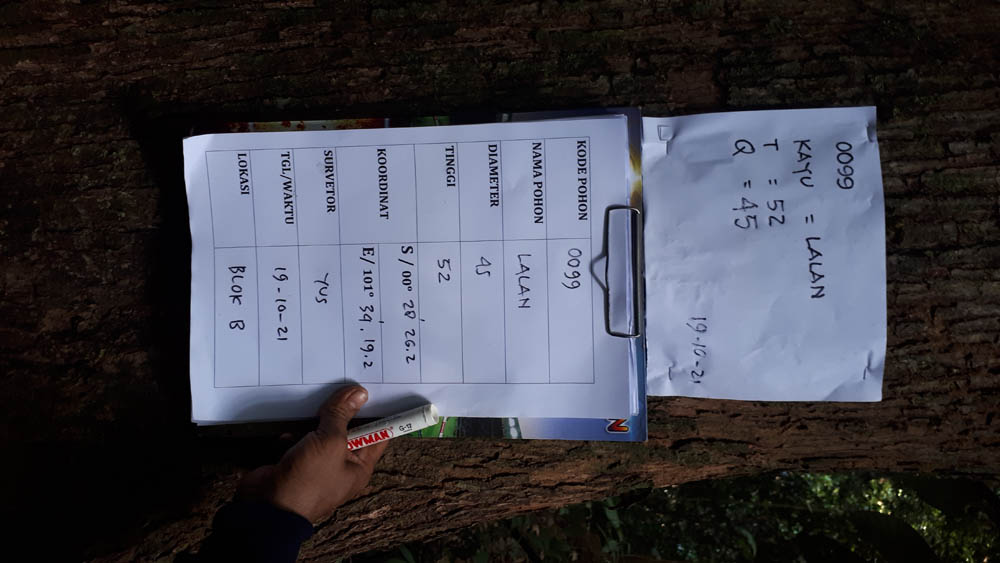 0099
KAYU = LALAN
T = 52
Q = 45
19-10-21
N
KODE POHON 0099
NAMA POHON LALAN
DIAMETER 45
TINGGI 52
KOORDINAT
S / 00° 28' 26.2
E/ 101° 34'. 19.2
SURVETOR YUS
TGL/WAKTU 19-10-21
LOKASI BLOK B
OWMAN